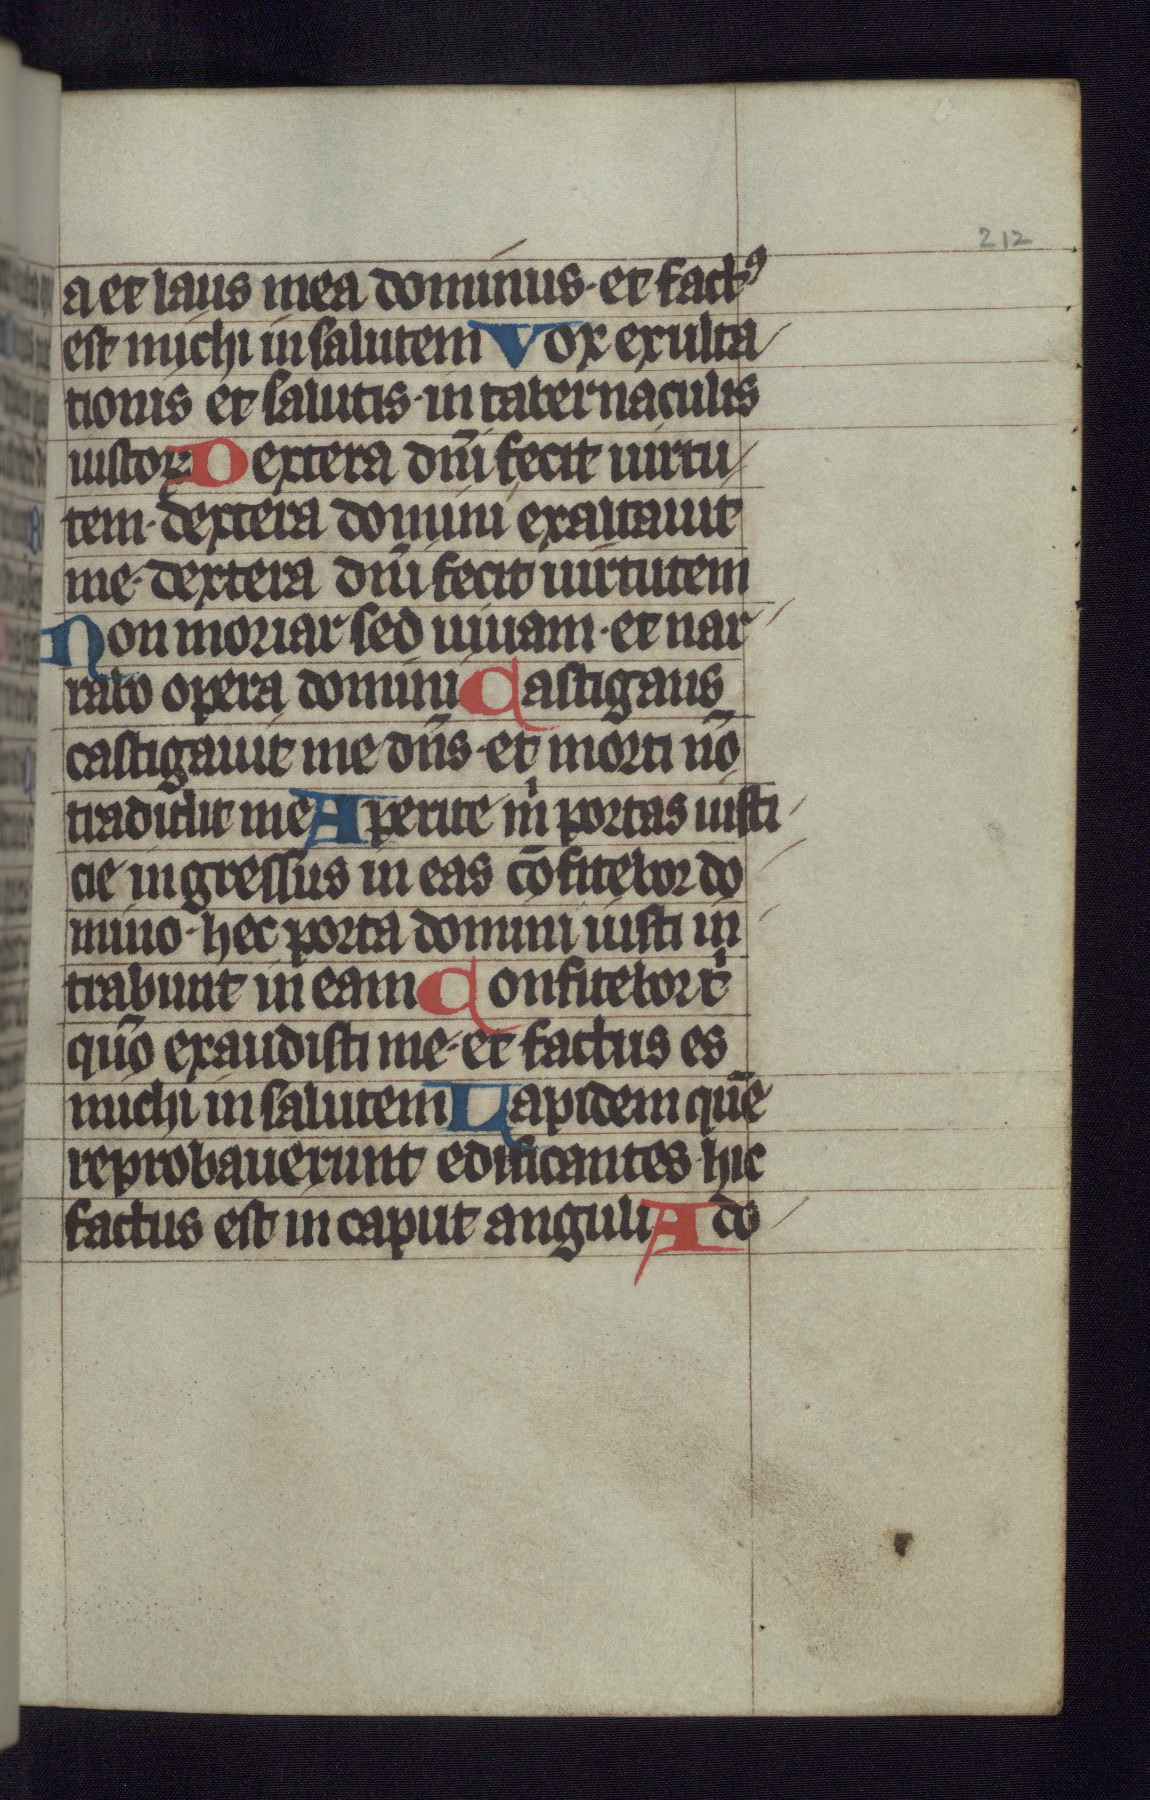 212
a et laus mea dominus· et fact᷒
est michi in salutem Vox exulta
tionis et salutis· in tabernaculis
iustoꝝ Dextera dn̄i fecit uirtu
tem· dextera domini exaltauit
me· dextera dn̄i fecit uirtutem
Non moriar sed uiuam· et nar
rabo opera domini Castigans
castigauit me dn̄s· et morti nō
tradidit me Aperite mͥ portas iusti
cie ingressus in eas cōfitebor do
mino· hec porta domini iusti in
trabunt in eam Confitebor tͥ
qūo exaudisti me· et factus es
michi in salutem Lapidem quē
reprobauerunt edificantes· hic
factus est in caput anguli A do